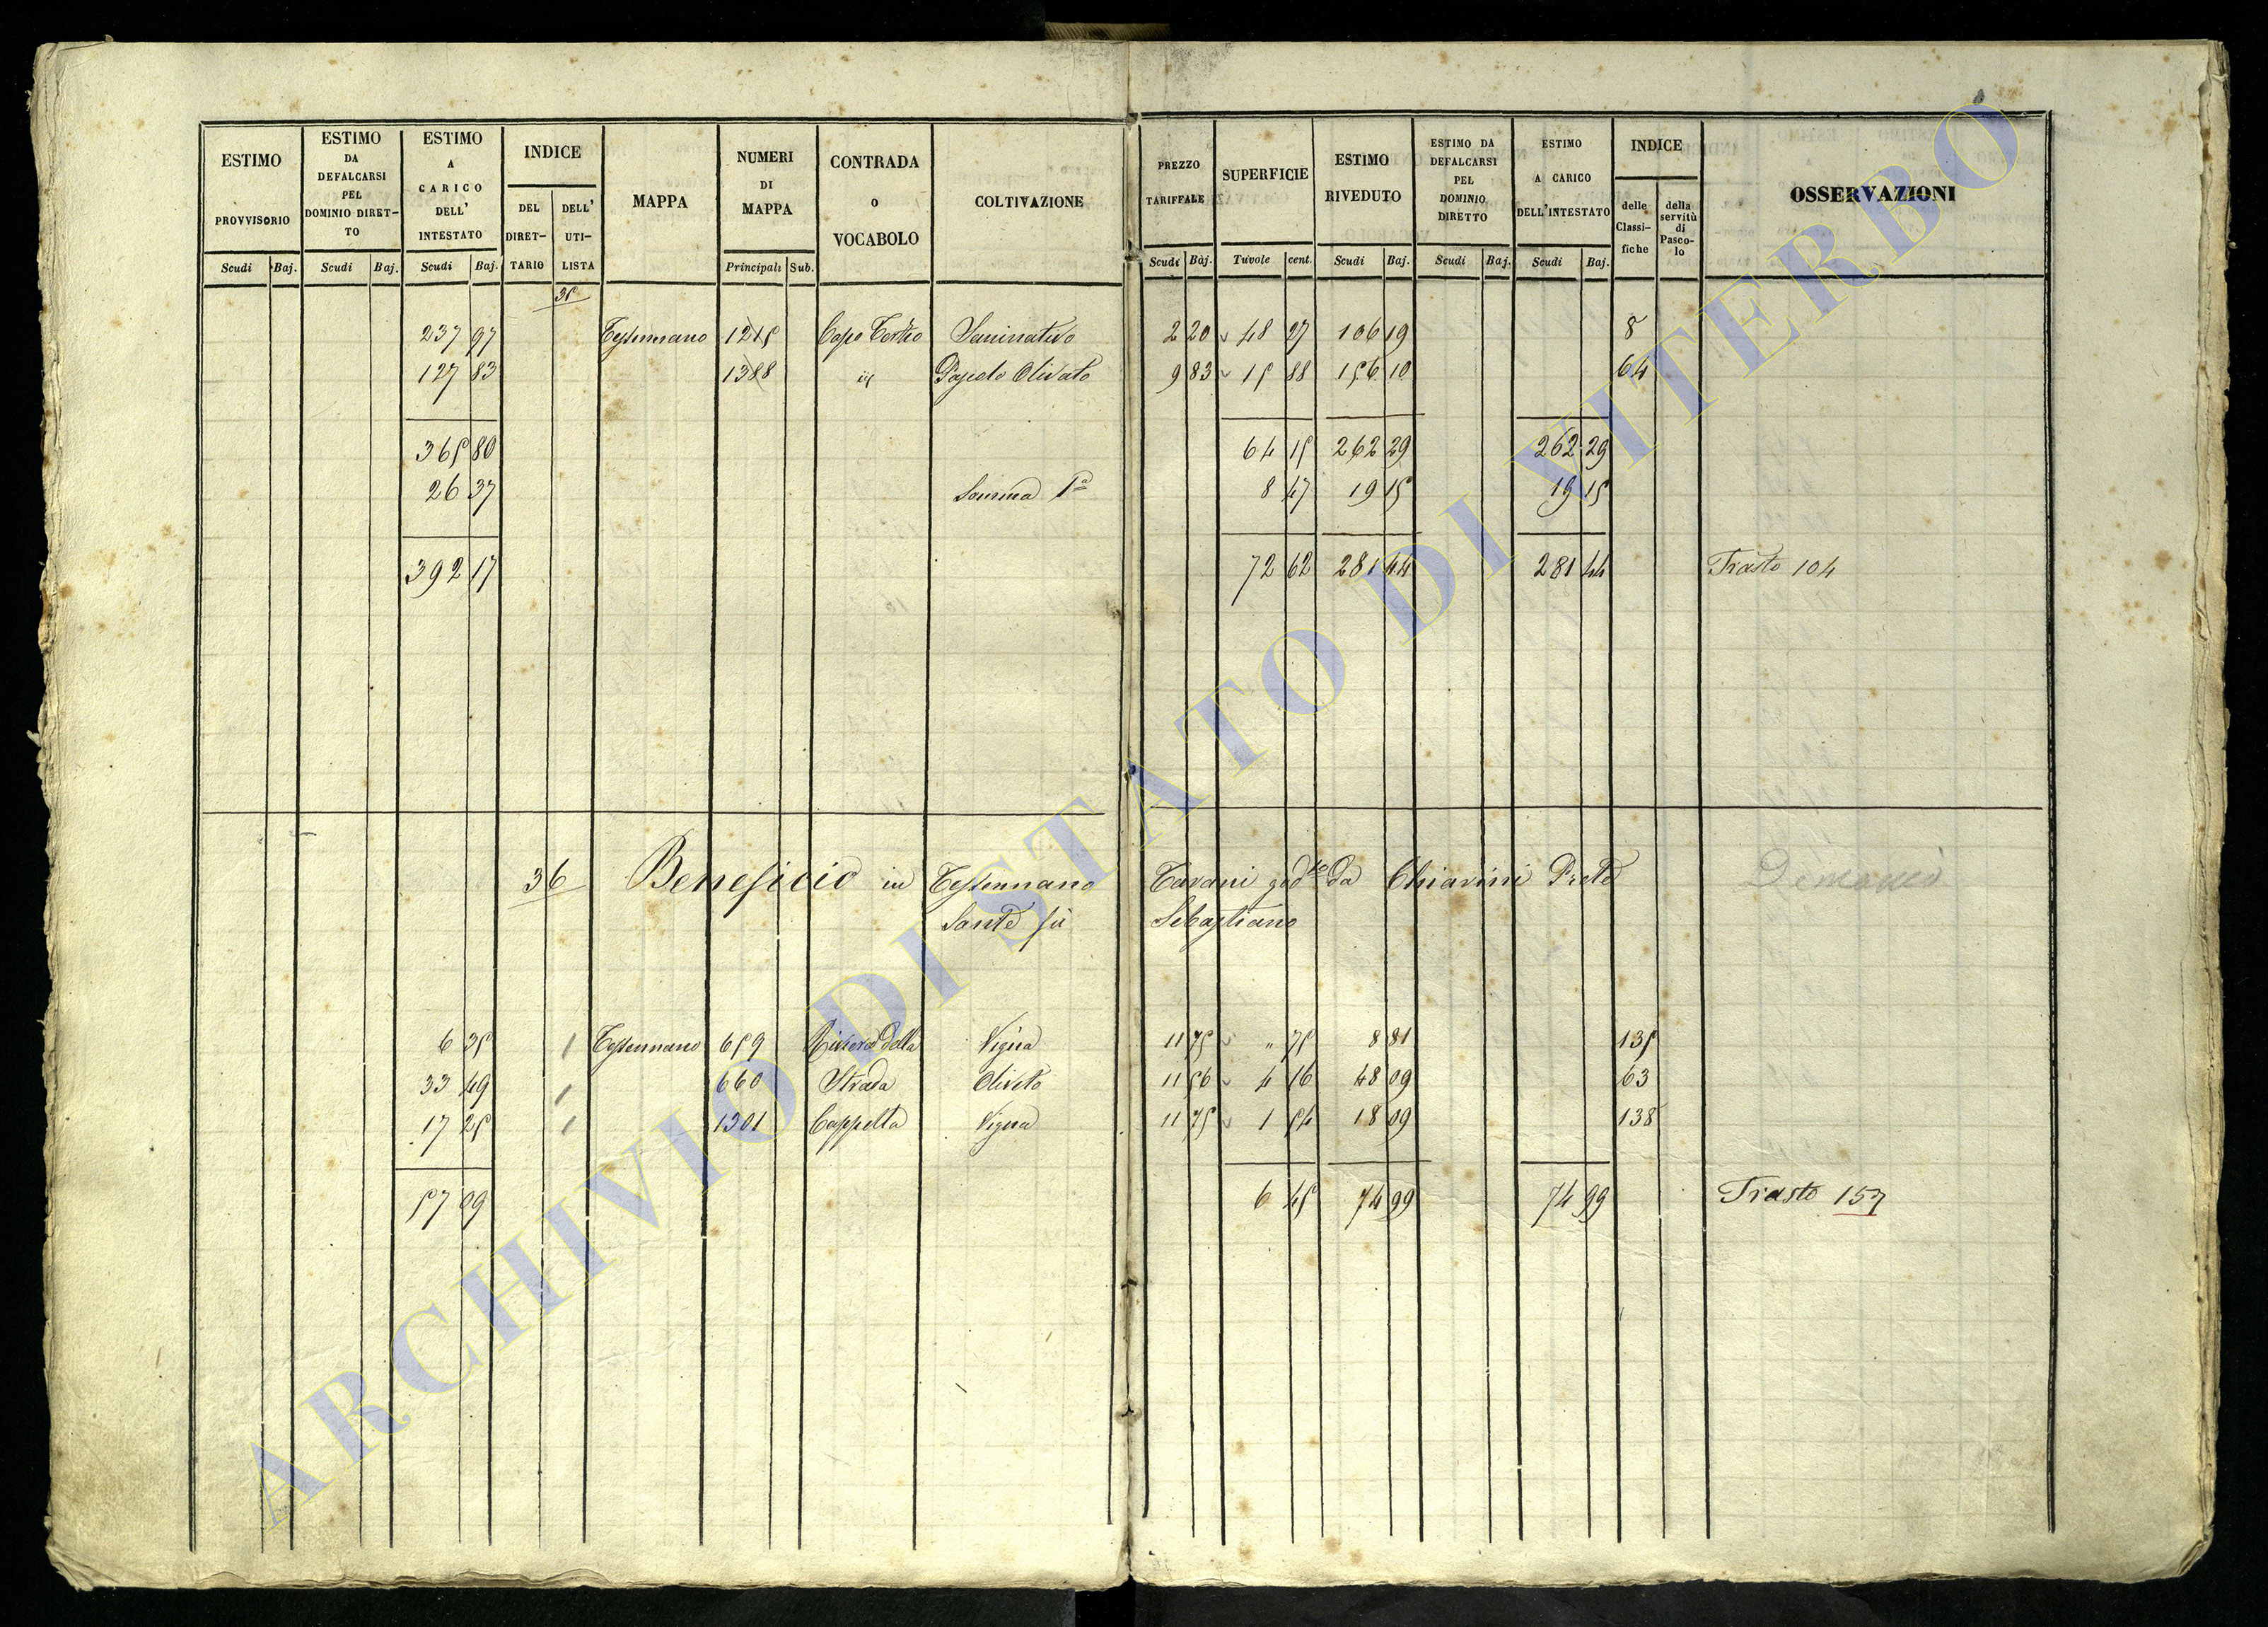 ESTIMO PROVVISORIO
Scudi Baj.
ESTIMO DA DEFALCARSI PEL DOMINIO DIRET- TO
Scudi Baj.
ESTIMO A CARICO DELL' INTESTATO
Scudi Baj.
INDICE
DEL DIRET- TARIO
DELL' UTI- LISTA
MAPPA
NUMERI DI MAPPA
Principali Sub.
CONTRADA o VOCABOLO
COLTIVAZIONE
PREZZO TARIFFALE
Scudi Baj.
SUPERFICIE
Tavole cent.
ESTIMO RIVEDUTO
Scudi Baj.
ESTIMO DA DEFALCARSI PEL DOMINIO DIRETTO
Scudi Baj.
ESTIMO A CARICO DELL'INTESTATO
Scudi Baj.
INDICE
delle Classi- fiche
della servitù di Pasco- lo
OSSERVAZIONI
35
237 97 Tessennano 1245 Capo Seminativo 2 20 48 27 106 19 8
127 83 1388 id Olivato 9 83 15 88 156 10 64
365 80 64 15 262 29 262 29
26 37 Somma 1a 8 47 19 15 19 15
392 17 72 62 281 44 281 44 Trasto 104
36 Beneficio in Tessennano Tavani godto da Chiavini Prete
Sante fù Sebastiano
6 35 Tessennano 659 Riviera della Vigna 11 75 " 75 8 81 135
33 49 660 Strada Oliveto 11 56 4 16 48 09 63
17 25 1301 Cappella Vigna 11 75 1 54 18 09 138
57 09 6 45 74 99 74 99 Trasto 157
ARCHIVIO DI STATO DI VITERBO